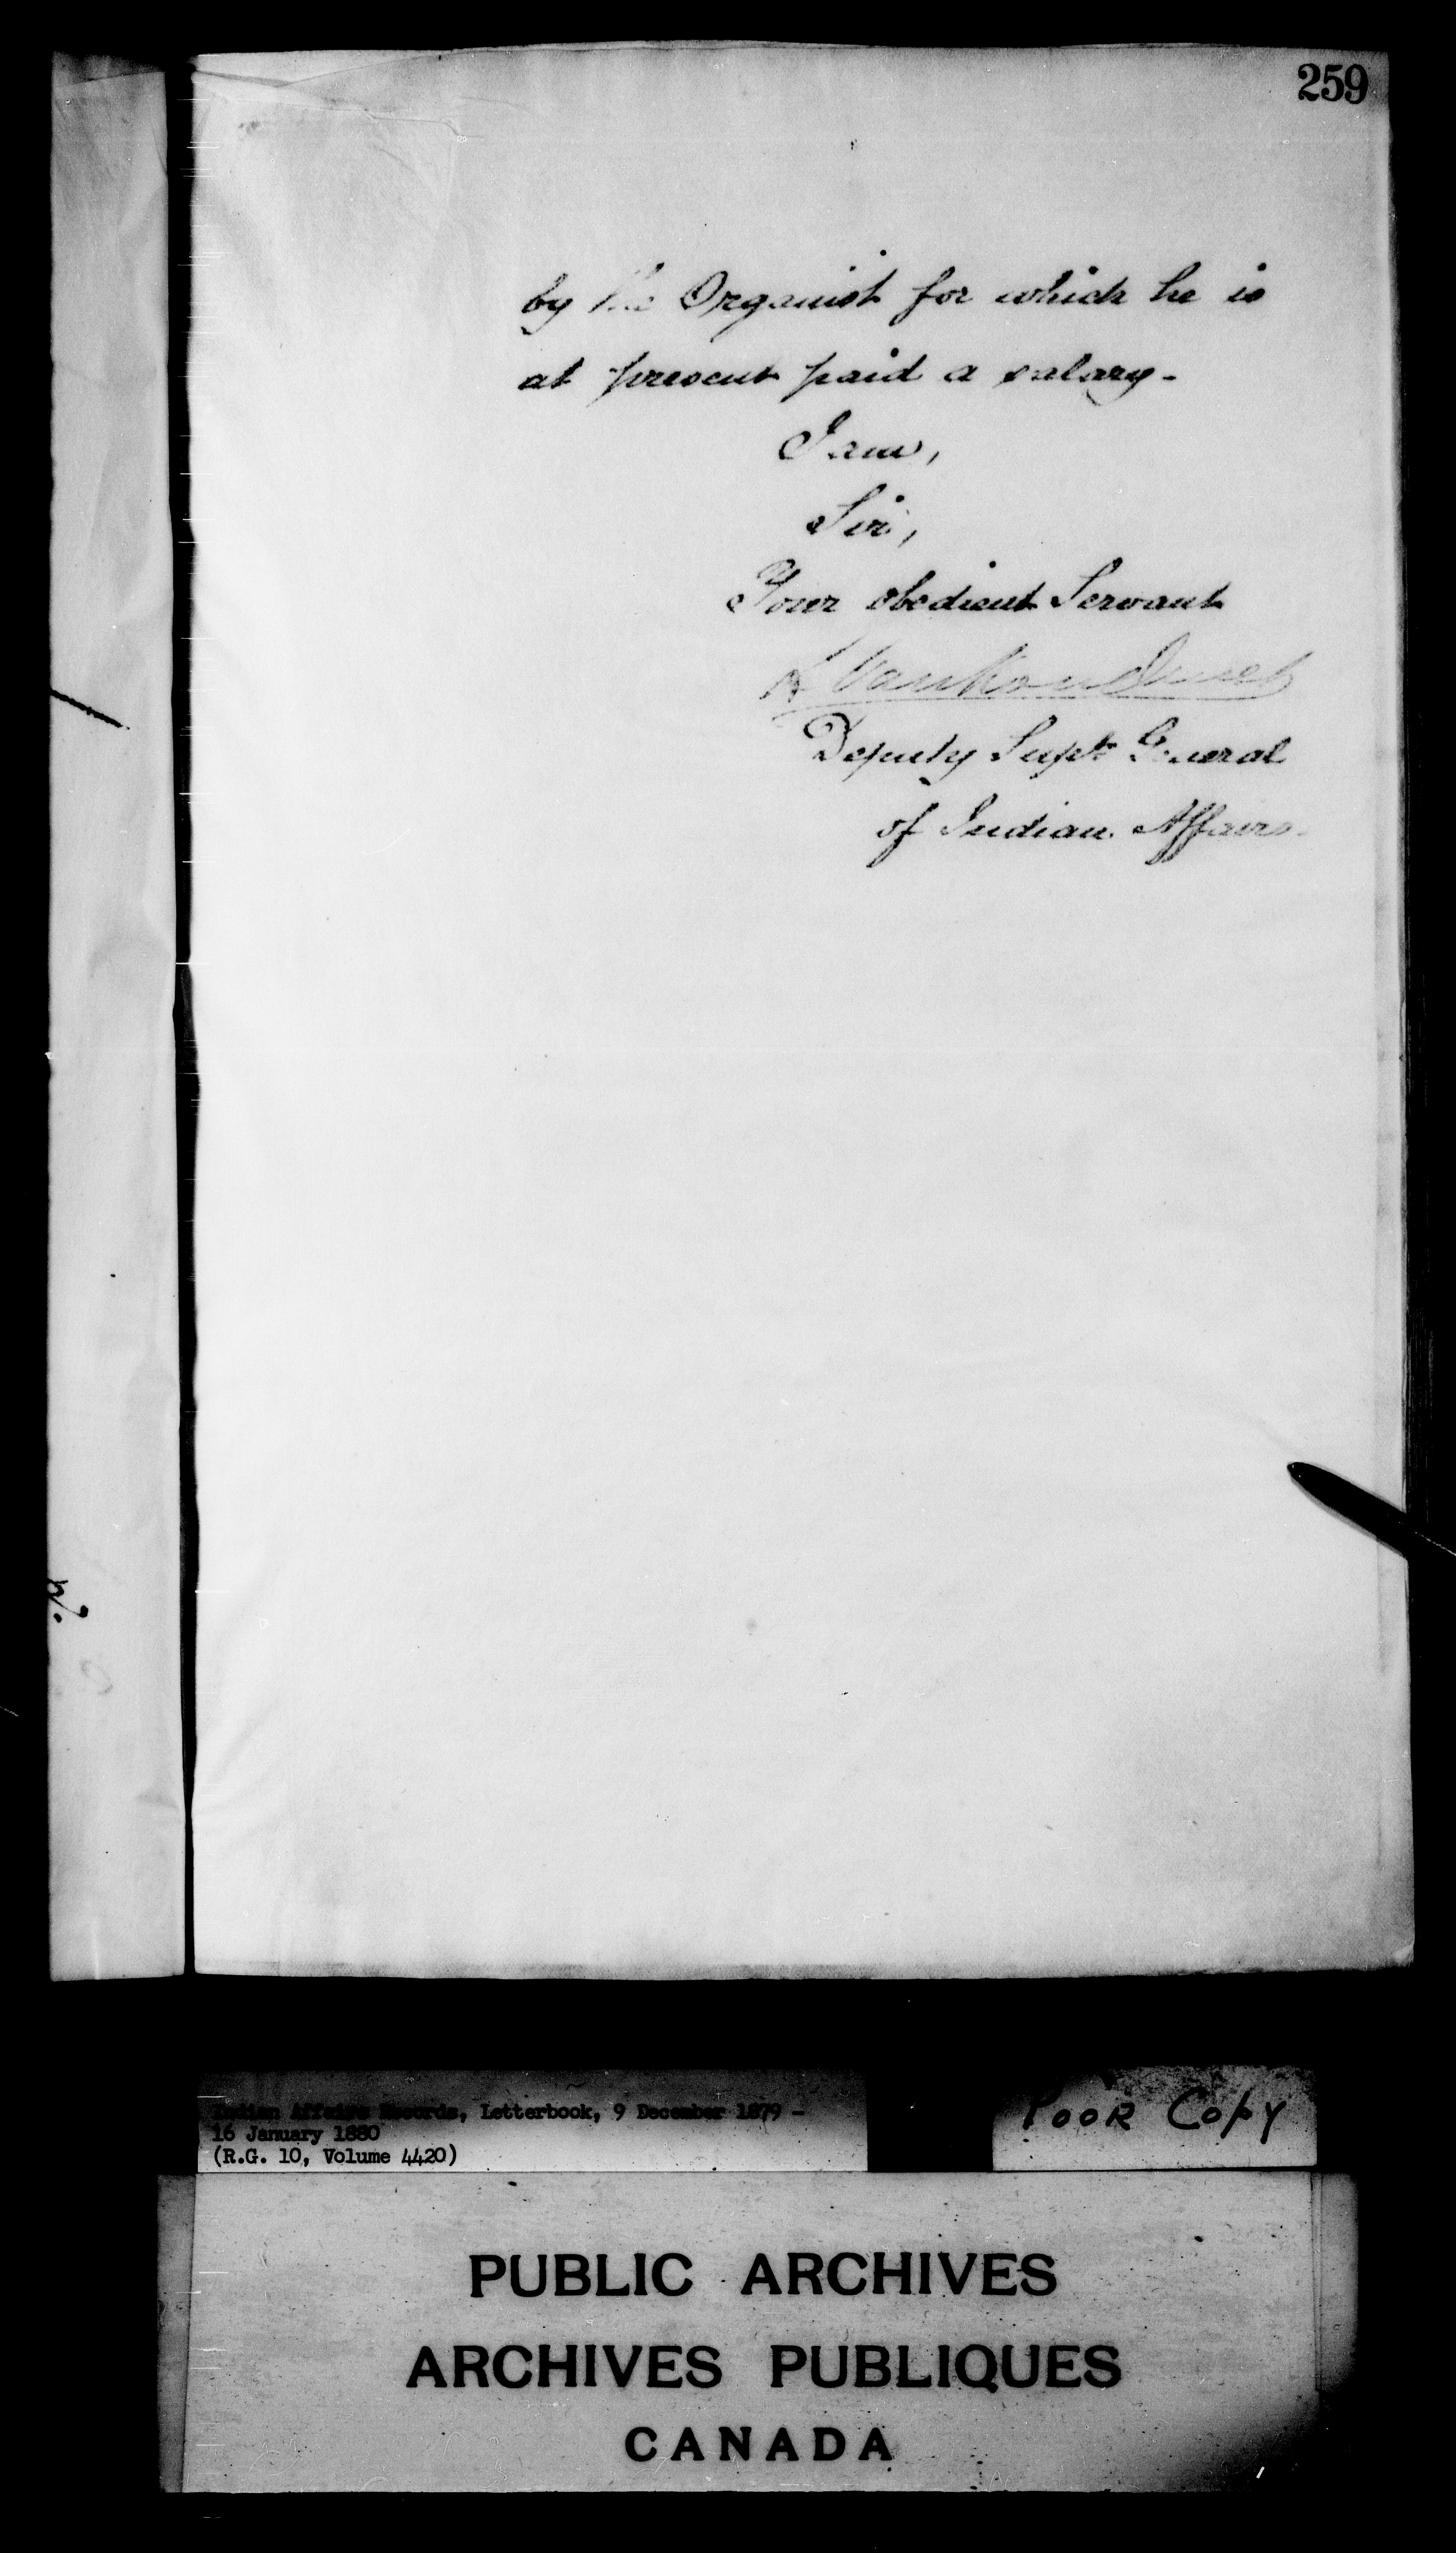 259
by the Organist for which he is
at present paid a salary-
I am,
Sir,
Your obedient Servant
L Vankoughnet
Deputy Supt General
of Indian Affairs.
Indian Affairs Records, Letterbook, 9 December 1879 -
16 January 1880
(R.G. 10, Volume 4420)
POOR COPY
PUBLIC ARCHIVES
ARCHIVES PUBLIQUES
CANADA